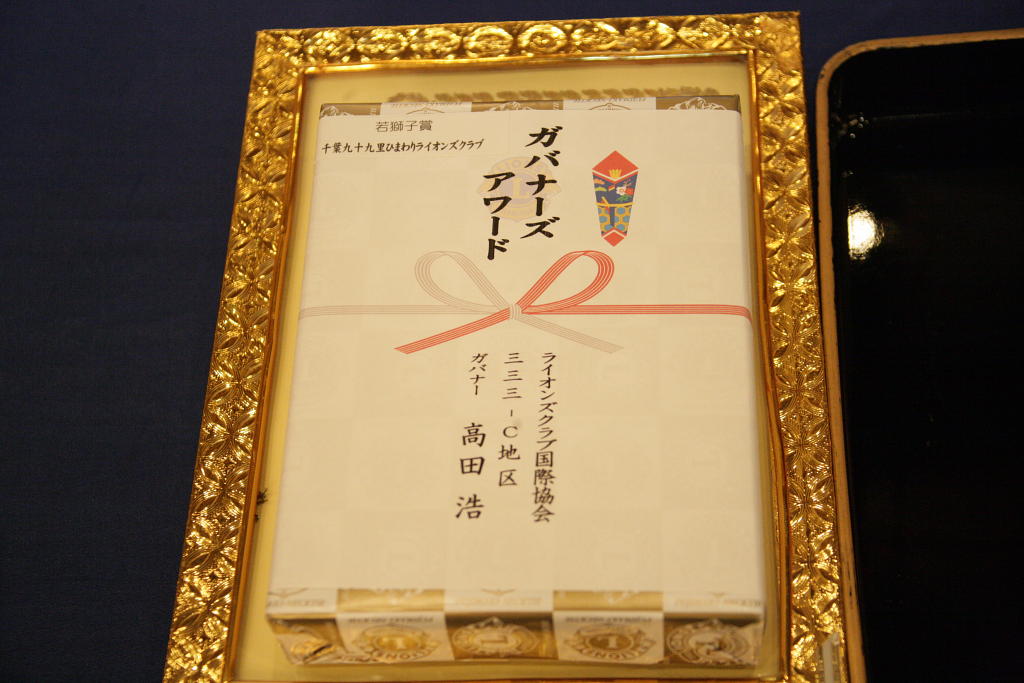 若獅子賞
千葉九十九里ひまわりライオンズクラブ
ガバナーズ
アワード
ライオンズクラブ国際協会
三三三-C地区
ガバナー 高田 浩